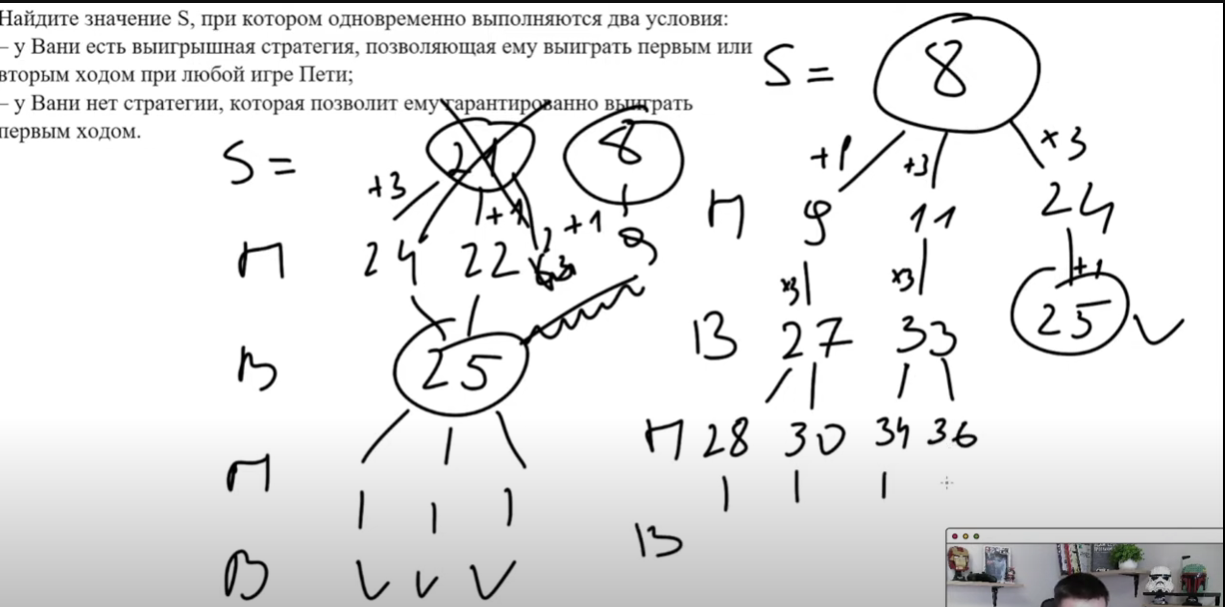 Найдите значение S, при котором одновременно выполняются два условия:
– у Вани есть выигрышная стратегия, позволяющая ему выиграть первым или
вторым ходом при любой игре Пети;
– у Вани нет стратегии, которая позволит ему гарантированно выиграть
первым ходом.
S = 21 8
+3 +1 +1
П 24 22 9
В 25
П
В
S = 8
+1 +3 ×3
П 9 11 24
×3 ×3 +1
В 27 33 25
П 28 30 34 36
В